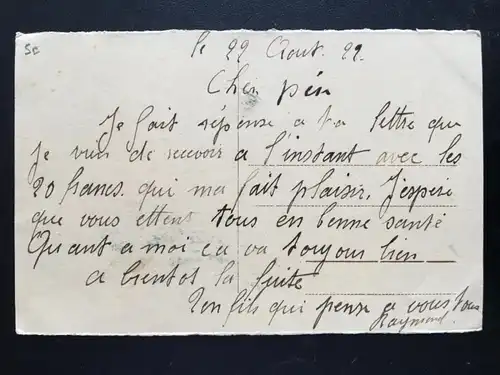 5e
le 22 Aout. 22.
Cher père
Je fait réponse a ta lettre que
Je viens de recevoir a l'instant avec les
20 francs. qui ma fait plaisir. J'espere
que vous ettent tous en bonne santé
Quant a moi ca va toujour bien
a bientot la suite
Ton fils qui pense a vous tous
Raymond.